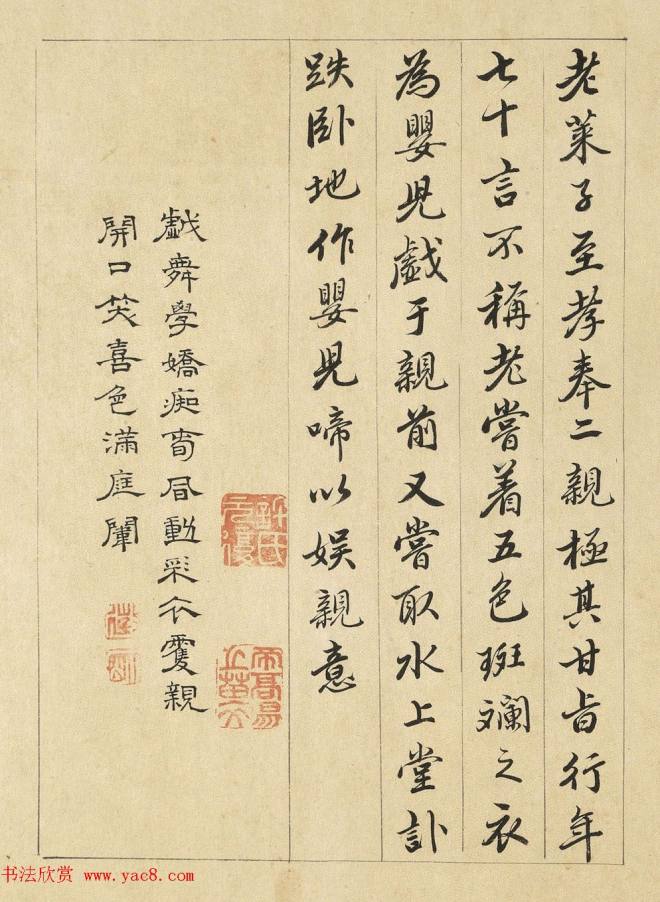 老萊子至孝奉二親極其甘旨行年
七十言不稱老嘗着五色斑斕之衣
為嬰兒戲于親前又嘗取水上堂詐
跌卧地作嬰兒啼以娛親意
戲舞學嬌痴春風動彩衣雙親
開口笑喜色滿庭闈
許氏元復
书法欣赏 www.yac8.com